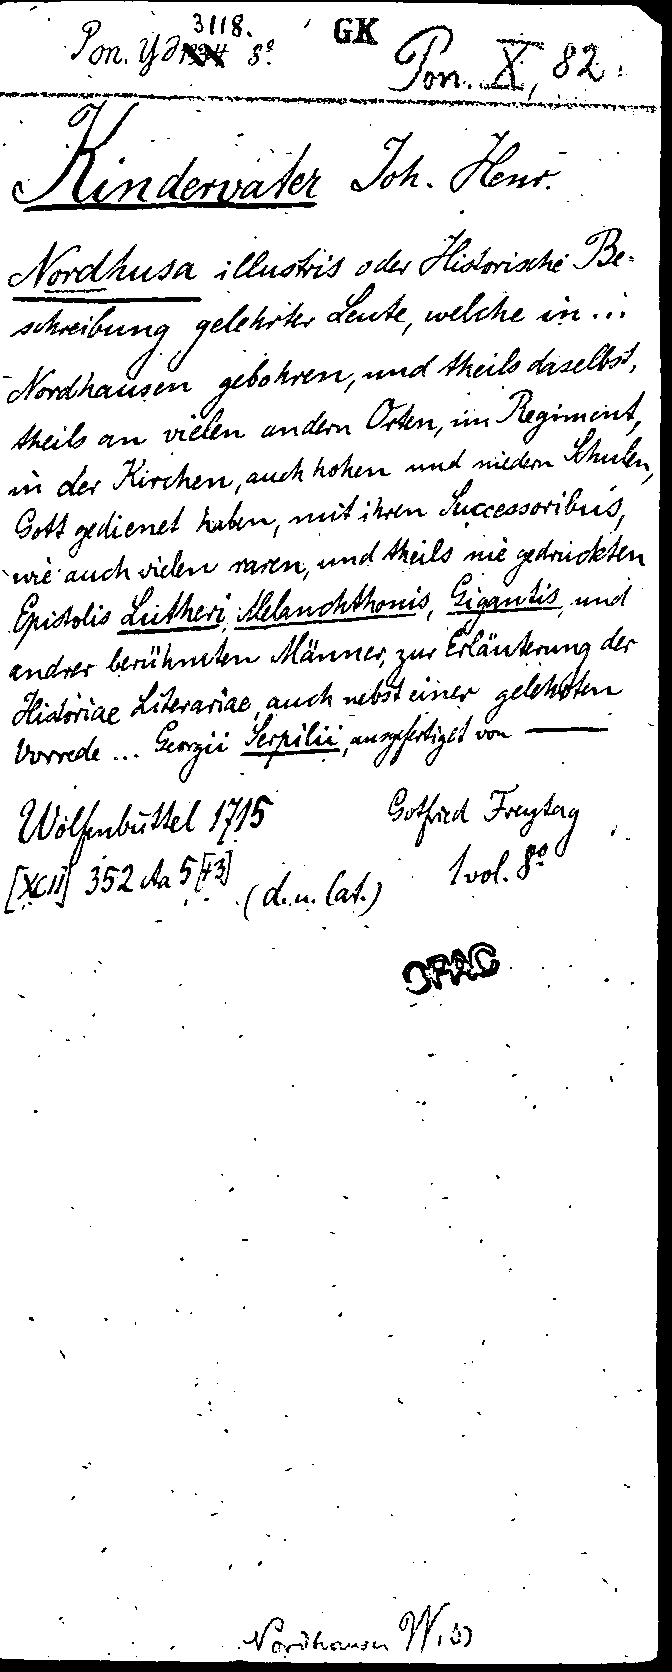 3118.
Pon. Yd 8° GK
Pon. X, 82.
Kindervater Joh. Henr.
Nordhusa illustris oder Historische Be-
schreibung gelehrter Leute, welche in ...
Nordhausen gebohren, und theils daselbst,
theils an vielen andern Orten, im Regiment,
in der Kirchen, auch hohen und niedern Schulen,
Gott gedienet haben, mit ihren Successoribus,
wie auch vielen raren, und theils nie gedruckten
Epistolis Lutheri, Melanchthonis, Gigantis, und
andrer berühmten Männer, zur Erläuterung der
Historiae Literariae, auch nebst einer gelehrten
Vorrede ... Georgii Serpilii, ausgefertiget von ———
Wolfenbüttel 1715 Gotfried Freytag
[XCII] 352 Aa 5 [+3] (d. u. lat.) 1 vol. 8°
OPAC
Nordhausen